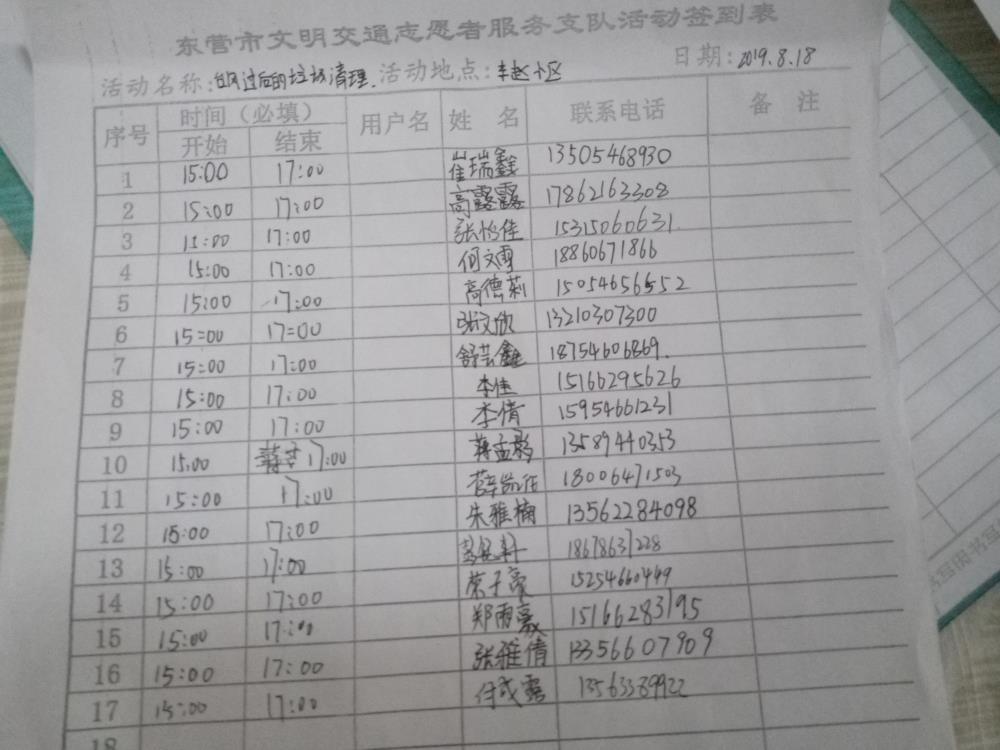 东营市文明交通志愿者服务支队活动签到表
活动名称:台风过后的垃圾清理. 活动地点:丰赵小区 日期:2019.8.18
序号 时间(必填) 用户名 姓 名 联系电话 备 注
开始 结束
1 15:00 17:00 崔瑞鑫 13505468930
2 15:00 17:00 高露露 17862163308
3 15:00 17:00 张怡佳 15315060631.
4 15:00 17:00 何文雪 18860671866
5 15:00 17:00 高德莉 15054656552
6 15=00 17=00 张文欣 13210307300
7 15:00 17:00 舒芸鑫 18754606869.
8 15:00 17:00 李佳 15166295626
9 15:00 17:00 李倩 15954661231
10 15:00 17:00 蒋孟影 13589440353
11 15:00 17:00 18006471503
12 15:00 17:00 朱雅楠 13562284098
13 15:00 17:00 18678637228
14 15:00 17:00 荣子豪 15254660449
15 15:00 17:00 郑雨豪 15166283195
16 15:00 17:00 张雅倩 13356607909
17 15:00 17:00 付成露 13563389922
18